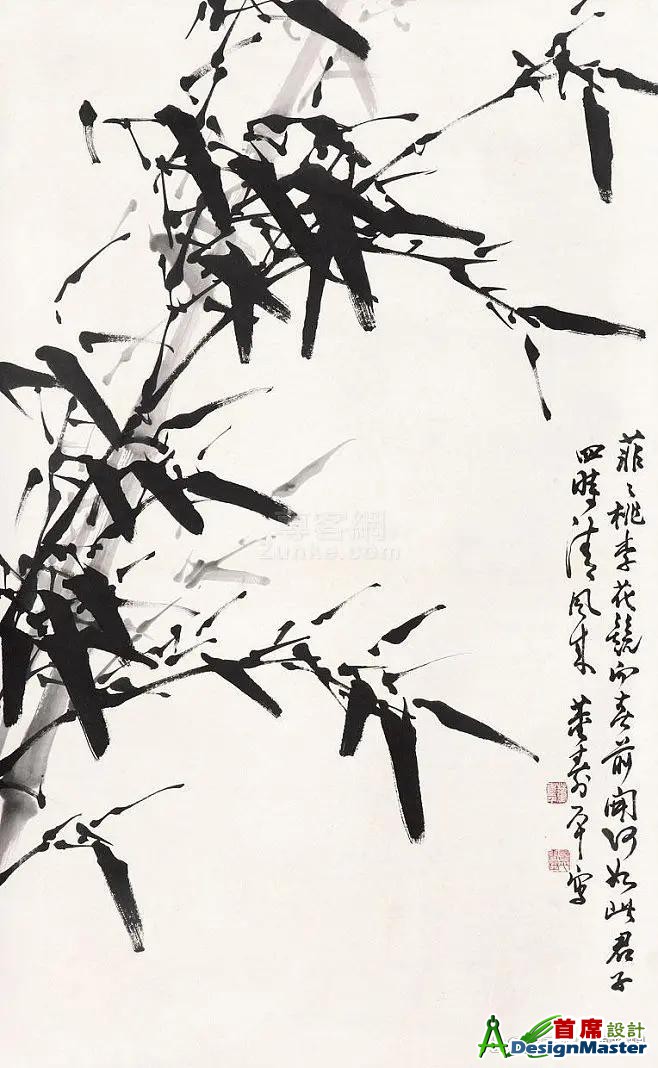 菲々桃李花競向春前開何如此君子
四時清風來 董壽平寫
尊客網
Zunke.com
首席設計
DesignMaster